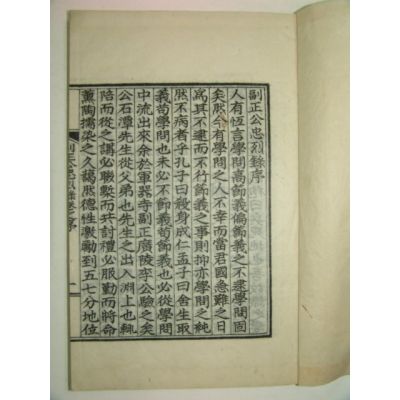 副正公忠烈錄序
人有恆言學問高節義偏節義之不逮學問固
矣然今有學問之人不幸而當君國危難之日
爲其不逮而不行節義之事則抑亦學問之純
然不病者乎孔子曰殺身成仁孟子曰舍生取
義苟學問也不必無節義苟節義也必從學問
中流出來余於軍器寺副正廣陵李公驗之矣
公石潭先生從父弟也先生之出入淵上也輒
陪而從之講必聯槧而共討禮必服勤而將命
薰陶擩染之久藹然德性激勵到五七分地位
副正公忠烈錄卷之序
一